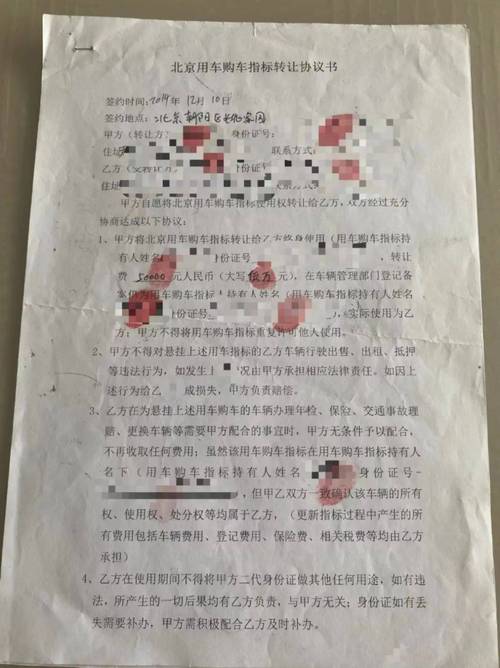 北京用车购车指标转让协议书
签约时间:2014年 12月 10日
签约地点:北京朝阳区 家园
甲方(转让方) 身份证号:
住址 联系方式:
乙方( 份证号
住
甲方自愿将北京用车购车指标使用权转让给乙方,双方经过充分
协商达成以下协议:
1、甲方将北京用车购车指标转让给乙方终身使用(用车购车指标持
有人姓名 份证号 ,转让
费 50000 元人民币(大写 伍万 元),在车辆管理部门登记备
案仍为用车购车指标 持有人姓名(用车购车指标持有人姓名
份证号 ),实际使用为乙
方;甲方不得将用车购车指标重复许可他人使用。
2、甲方不得对悬挂上述用车指标的乙方车辆行驶出售、出租、抵押
等违法行为,如发生上 况由甲方承担相应法律责任。如因上
述行为给乙 成损失,甲方负责赔偿。
3、乙方在为悬挂上述用车购车的车辆办理年检、保险、交通事故理
赔、更换车辆等需要甲方配合的事宜时,甲方无条件予以配合,
不再收取任何费用;虽然该用车购车指标在用车购车指标持有人
名下(用车购车指标持有人姓名 身份证号-
,但甲乙双方一致确认该车辆的所有
权、使用权、处分权等均属于乙方,(更新指标过程中产生的所
有费用包括车辆费用、登记费用、保险费、相关税费等均由乙方
承担)
4、乙方在使用期间不得将甲方二代身份证做其他任何用途,如有违
法,所产生的一切后果均有乙方负责,与甲方无关;身份证如有丢
失需要补办,甲方需积极配合乙方及时补办。